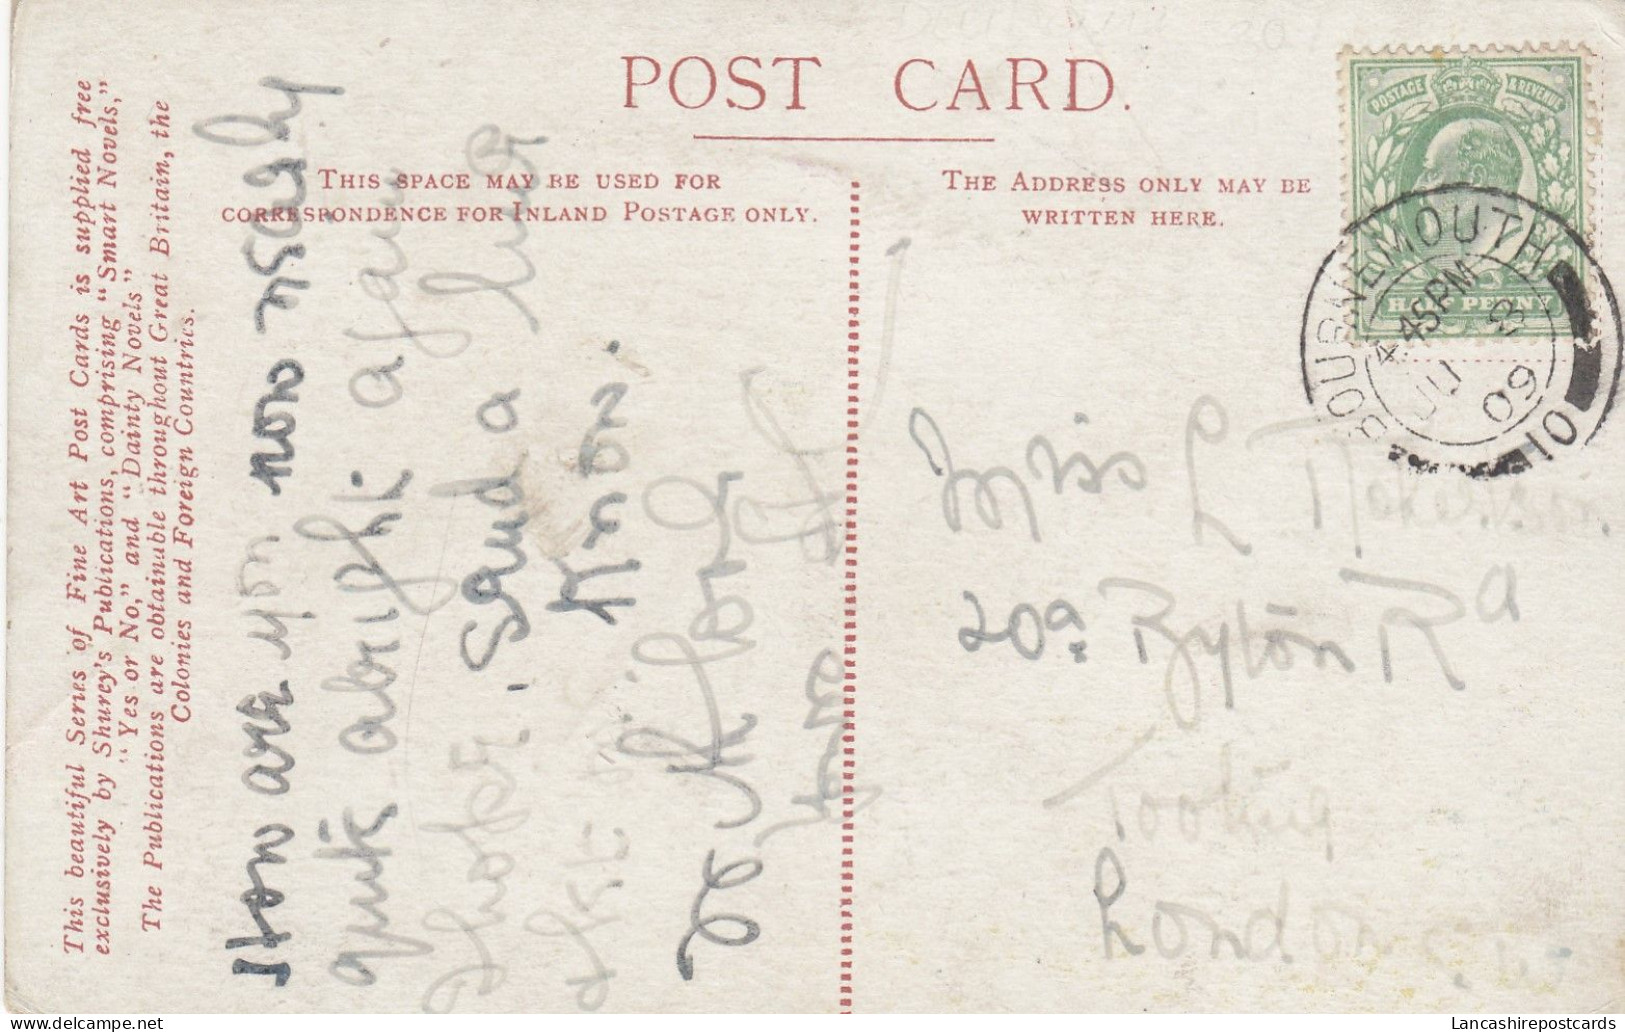 POST CARD.
THIS SPACE MAY BE USED FOR
CORRESPONDENCE FOR INLAND POSTAGE ONLY.
THE ADDRESS ONLY MAY BE
WRITTEN HERE.
This beautiful Series of Fine Art Post Cards is supplied free
exclusively by Shurey's Publications, comprising "Smart Novels,"
"Yes or No," and "Dainty Novels"
The Publications are obtainable throughout Great Britain, the
Colonies and Foreign Countries.
How are you now nearly
quite alright again
I hope. Send a line
let me know.
POSTAGE & REVENUE
HALF PENNY
BOURNEMOUTH
4.45PM
JU 3
09
10
Miss L
20a Byton Rd
Tooting
London
Lancashirepostcards